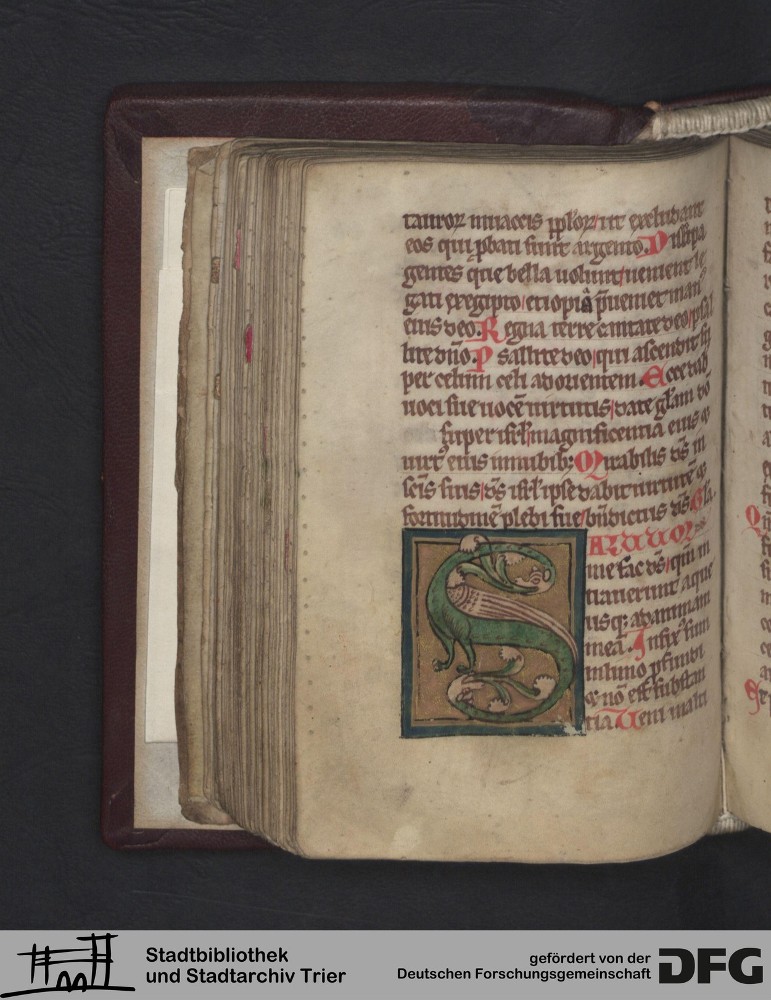 tauroꝝ inuaccis ppl'oꝝ / ut excludant
eos qui pbati sunt argento. Dissipa
gentes que bella uolunt / uenient le
gati exegipto / etiopia pueniet man'
eius deo. Regna terre cantate deo / psal
lite dño. Psallite deo / qui ascendit sr̄
per celum celi adorientem. Ecce dab
uoci sue uocē uirtutis / date gl'am dō
super isrl' / magnificentia eius ⁊
uirt' eius innubib; Mirabilis ds̄ in
sc̄is suis / ds̄ isrl' ipse dabit uirtutē ⁊
fortitudinē plebi sue / bn̄dictus ds̄. Gl'a.
SALVUM
me fac ds̄ / qm̄ in
trauerunt aque
usq; ad animam
meā. Infix' sum
inlimo pfundi
⁊ nō est substan
tia Veni inalti
Stadtbibliothek
und Stadtarchiv Trier
gefördert von der
Deutschen Forschungsgemeinschaft
DFG